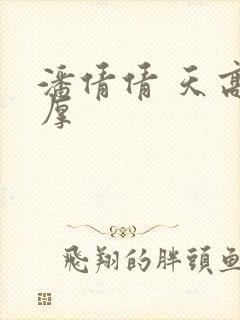 潘倩倩 天高
厚
飛翔的胖頭魚